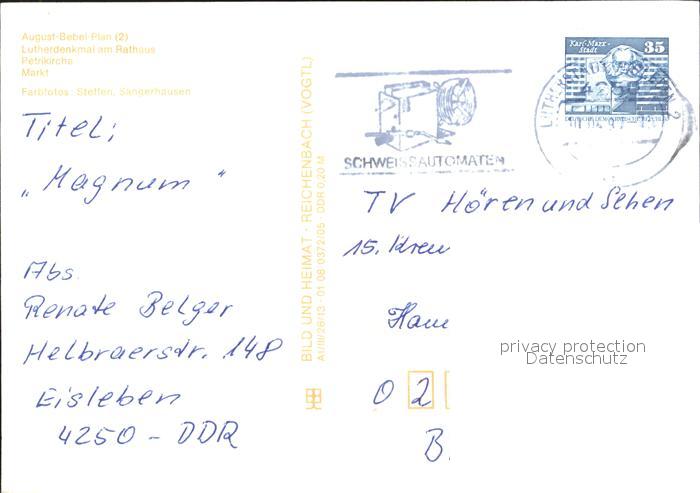 August-Bebel-Plan (2)
Lutherdenkmal am Rathaus
Petrikirche
Markt
Farbfotos: Steffen, Sangerhausen
Titel:
„Magnum“
Abs.
Renate Belger
Helbraerstr. 148
Eisleben
4250 - DDR
BILD UND HEIMAT · REICHENBACH (VOGTL)
A1/III/26/13 · 01 08 0372/05 · DDR 0,20 M
SCHWEISSAUTOMATEN
Karl-Marx-
Stadt
35
TV Hören und Sehen
15. Kreu
Ham
0 2
B.
privacy protection
Datenschutz